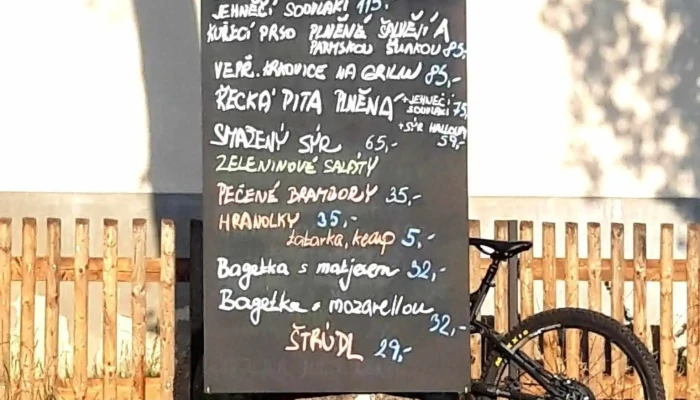 JEHNĚČÍ SOUVLAKI 115,-
KUŘECÍ PRSO PLNĚNÉ ŠALVĚJÍ A
PARMSKOU ŠUNKOU 85,-
VEPŘ. KRKOVICE NA GRILU 85,-
ŘECKÁ PITA PLNĚNÁ +JEHNEČÍ
SOUVLAKI 75,
+SÝR HALLOUMI
59,-
SMAŽENÝ SÝR 65,-
ZELENINOVÉ SALÁTY
PEČENÉ BRAMBORY 35,-
HRANOLKY 35,-
tatarka, kečup 5,-
Bagetka s matjesem 32,-
Bagetka s mozarellou
32,-
ŠTRÚDL 29,-